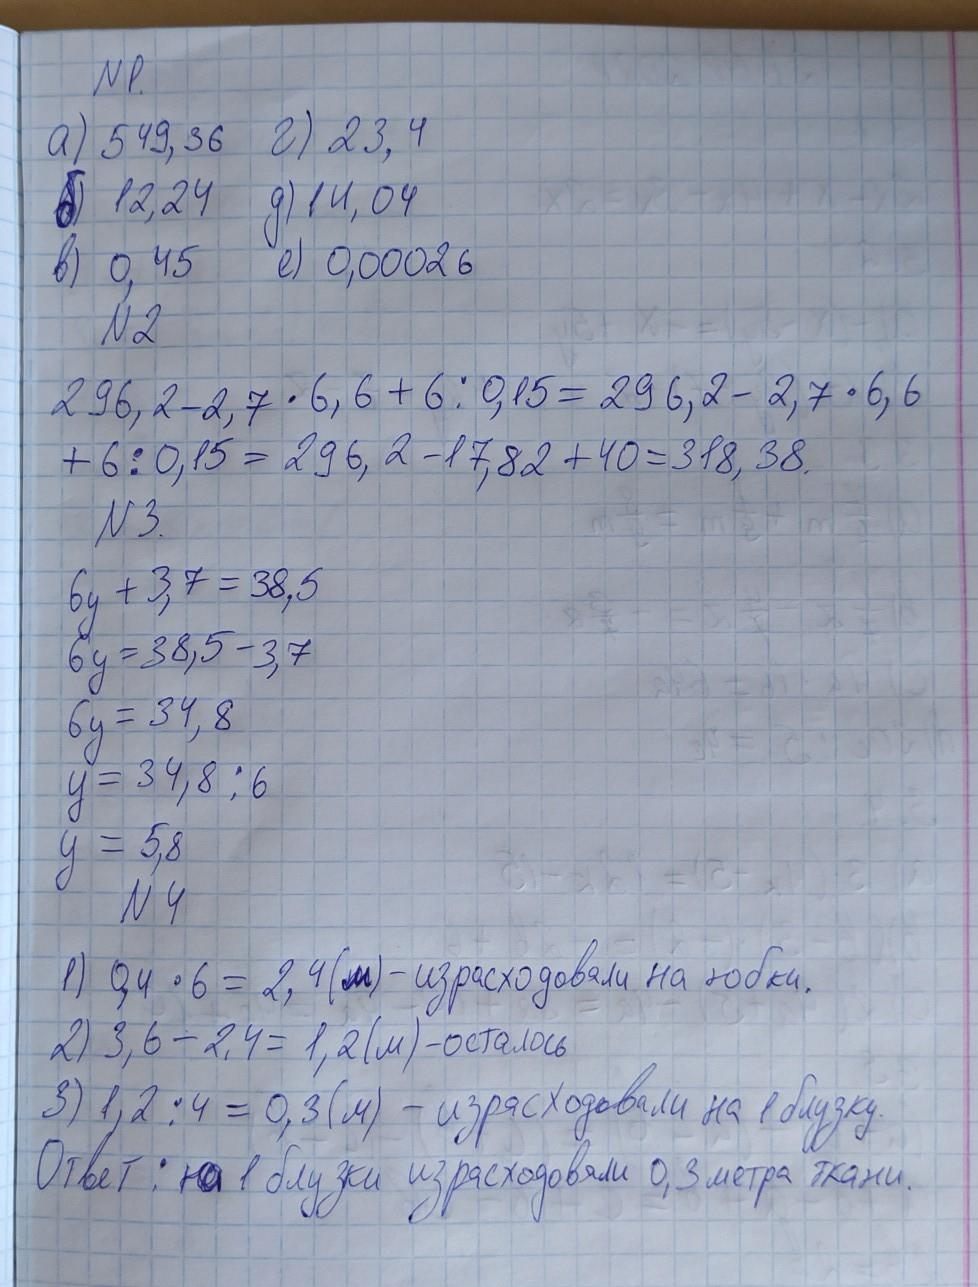 N1.
а) 549,36 г) 23,4
б) 12,24 д) 14,04
в) 0,45 е) 0,00026
N2
296,2-2,7·6,6+6:0,15= 296,2- 2,7·6,6
+6:0,15= 296,2-17,82+40=318,38.
N3.
6y+3,7=38,5
6y=38,5-3,7
6y=34,8
y=34,8:6
y=5,8
N4
1) 0,4·6=2,4(м)-израсходовали на юбки.
2) 3,6-2,4=1,2(м)-осталось
3) 1,2:4=0,3(м)-израсходовали на 1 блузку.
Ответ: на 1 блузки израсходовали 0,3 метра ткани.